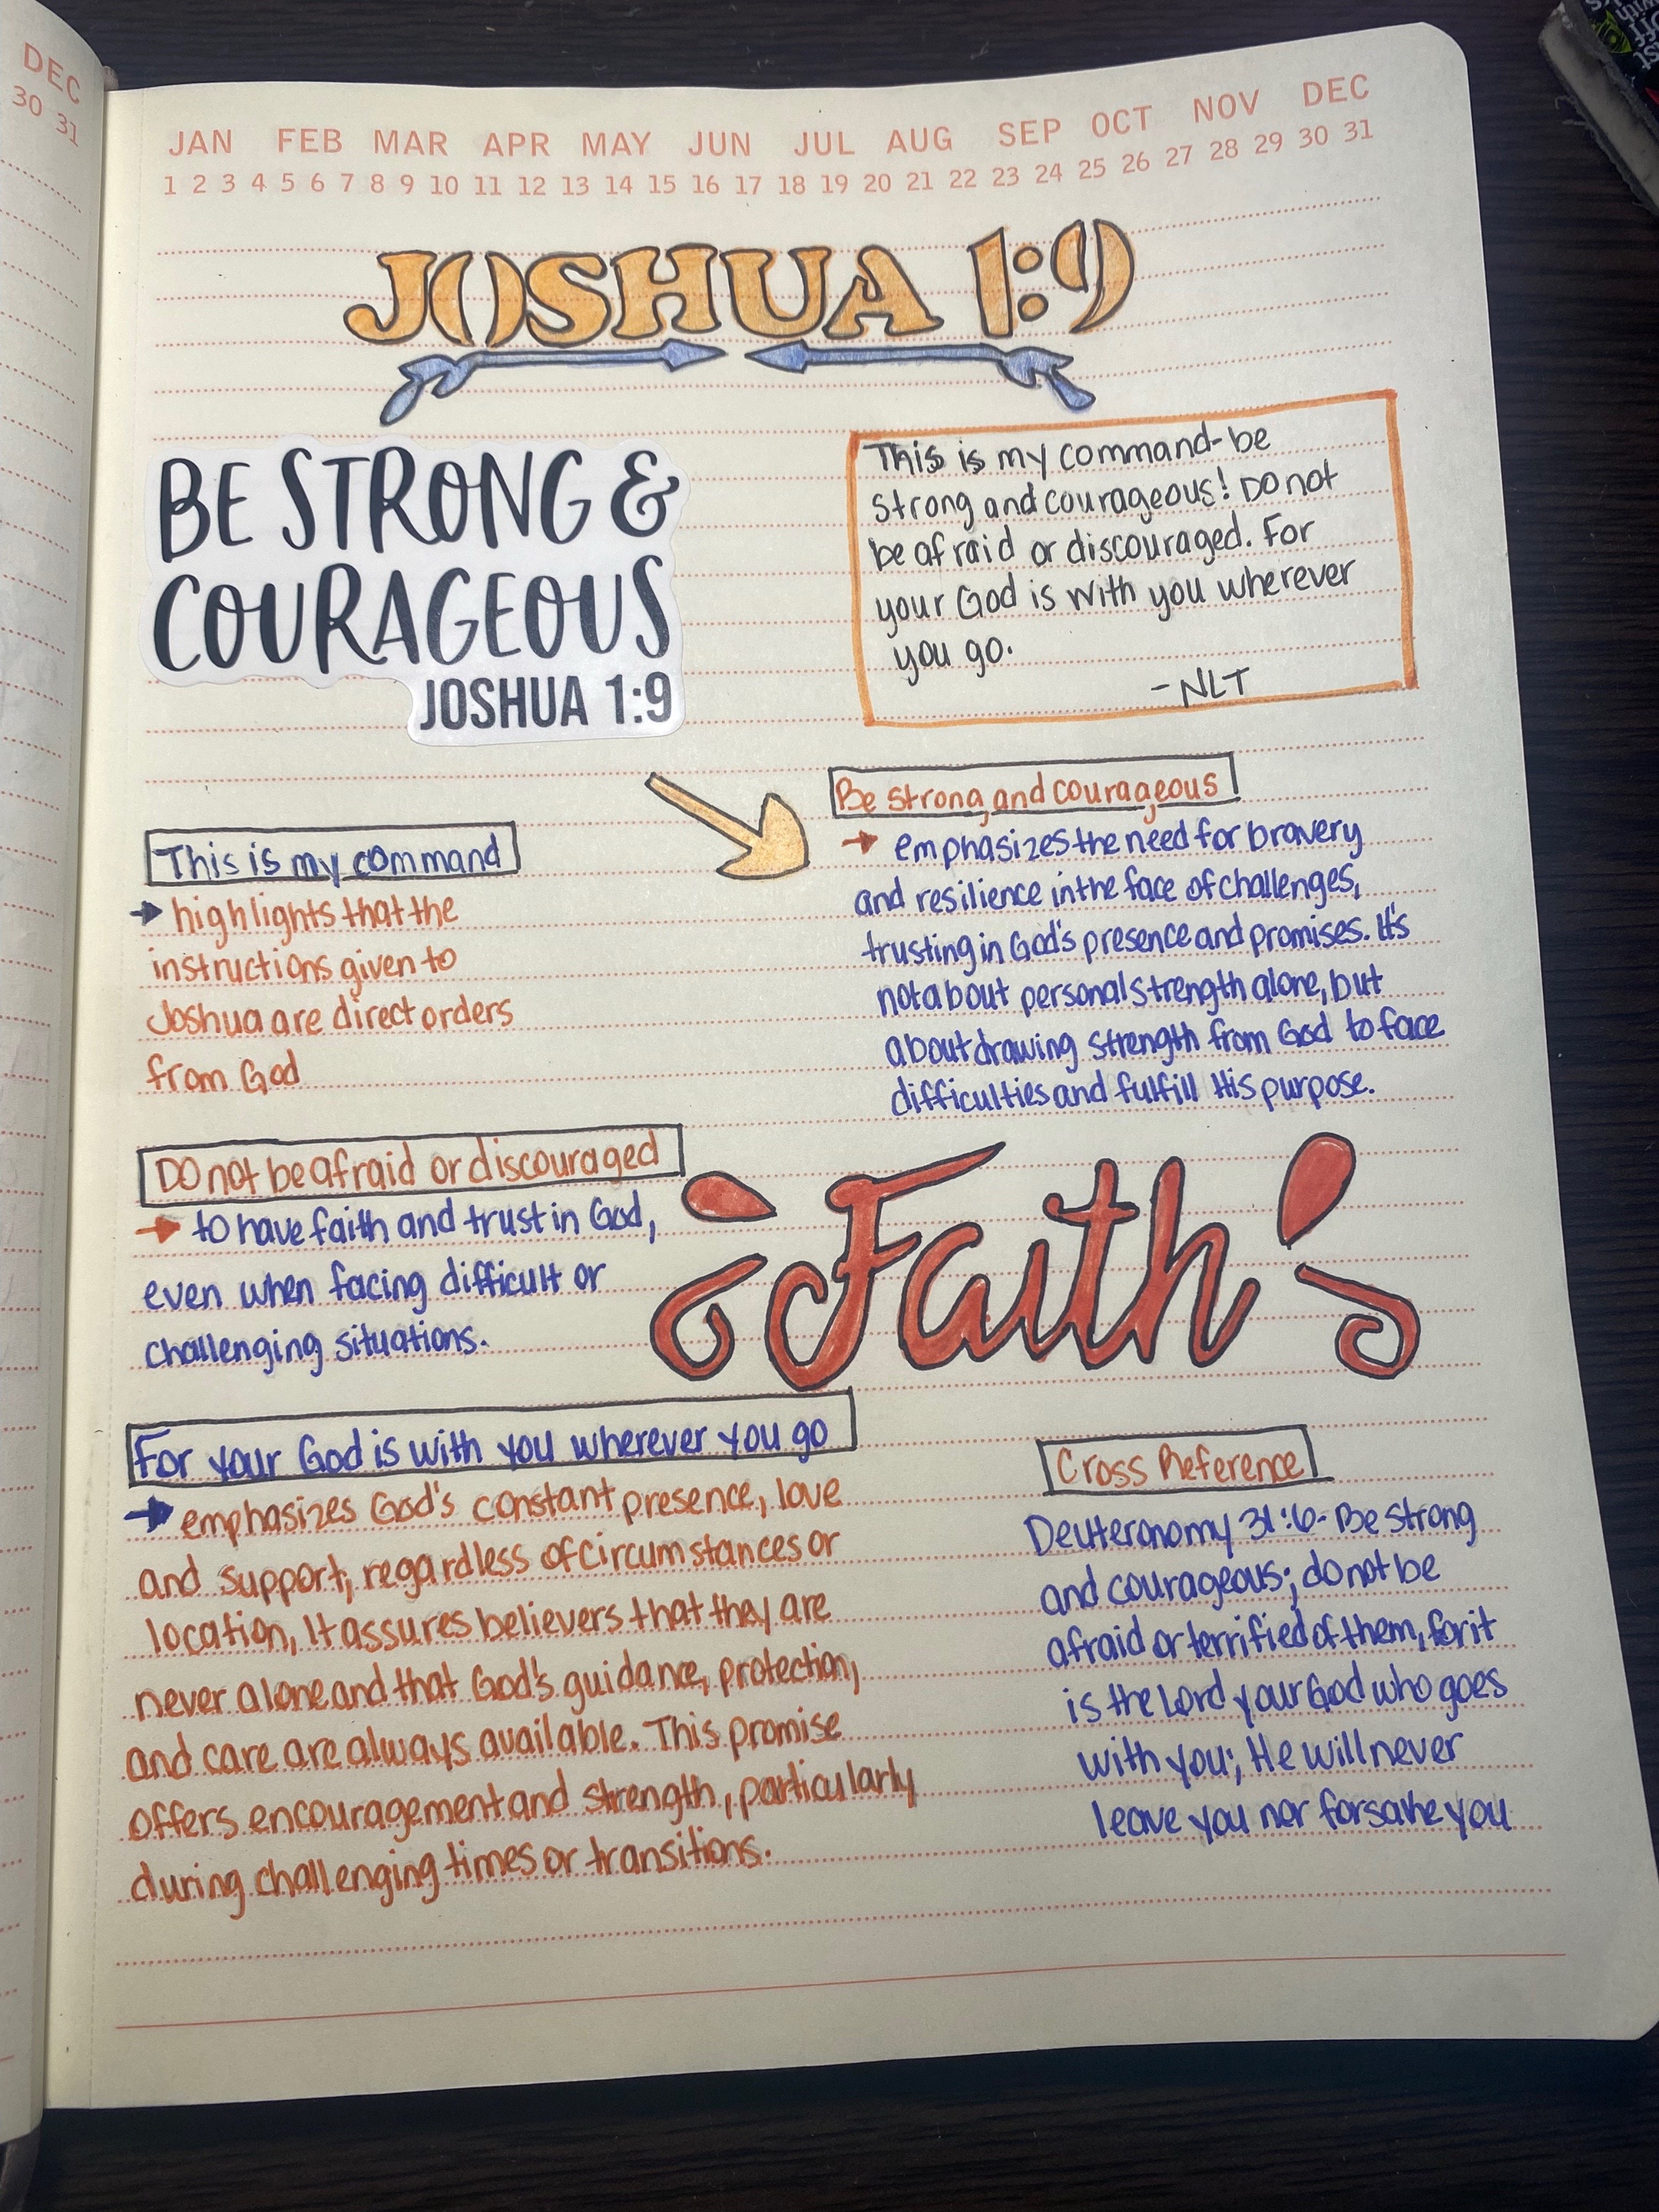 DEC
30 31
JAN FEB MAR APR MAY JUN JUL AUG SEP OCT NOV DEC
1 2 3 4 5 6 7 8 9 10 11 12 13 14 15 16 17 18 19 20 21 22 23 24 25 26 27 28 29 30 31
JOSHUA 1:9
BE STRONG &
COURAGEOUS
JOSHUA 1:9
This is my command-be
strong and courageous! Do not
be afraid or discouraged. For
your God is with you wherever
you go.
- NLT
This is my command
highlights that the
instructions given to
Joshua are direct orders
from God
Be strong and courageous
emphasizes the need for bravery
and resilience in the face of challenges,
trusting in God's presence and promises. It's
not about personal strength alone, but
about drawing strength from God to face
difficulties and fulfill His purpose.
Do not be afraid or discouraged
to have faith and trust in God,
even when facing difficult or
challenging situations.
Faith
For your God is with you wherever you go
emphasizes God's constant presence, love
and support, regardless of circumstances or
location, It assures believers that they are
never alone and that God's guidance, protection,
and care are always available. This promise
offers encouragement and strength, particularly
during challenging times or transitions.
Cross Reference
Deuteronomy 31:6- Be strong
and courageous; do not be
afraid or terrified of them, for it
is the Lord your God who goes
with you; He will never
leave you nor forsake you